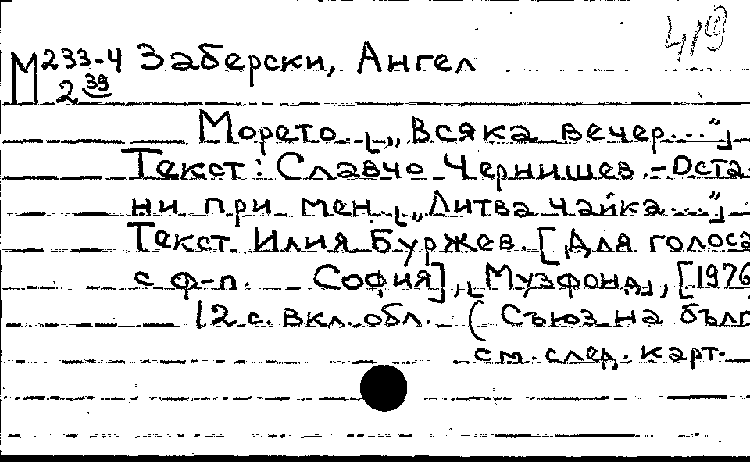 419
М 233-4 Заберски, Ангел
2 39
Морето. [„Всяка вечер..."]
Текст: Славчо Чернишев. - Оста-
ни при мен. [„Литва чайка..."]
Текст Илия Буржев. [Для голоса
с ф-п. София], [Музфонд], [1976
12 с. вкл. обл. (Съюз на бълг
см. след. карт.